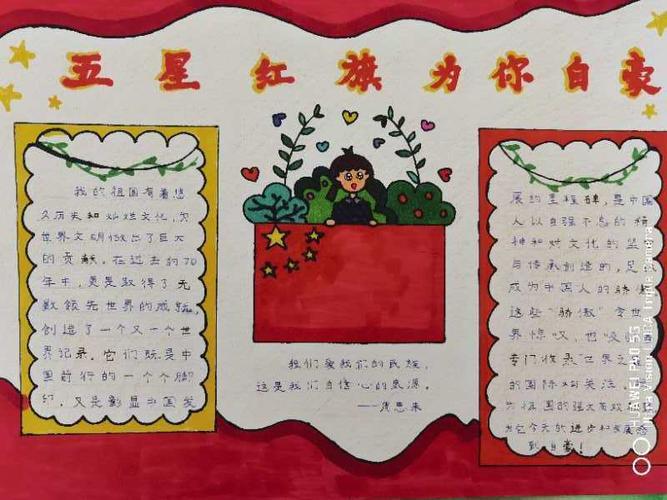 五星红旗为你自豪
我的祖国有着悠
久历史和灿烂文化,为
世界文明做出了巨大
的贡献。在过去的70
年中,更是取得了无
数领先世界的成就,
创造了一个又一个世
界纪录。它们既是中
国前行的一个个脚
印,又是彰显中国发
我们爱我们的民族,
这是我们自信心的泉源。
——周恩来
展的里程碑,是中国
人以自强不息的精
神和对文化的坚
与传承创造的,足以
成为中国人的骄傲
这些“骄傲”令世
界惊叹,也吸引
专门收录“世界之
的国际的关注。
为祖国的强大喜欢
为它今天的进步和发展感
到自豪!
HUAWEI P40 5G